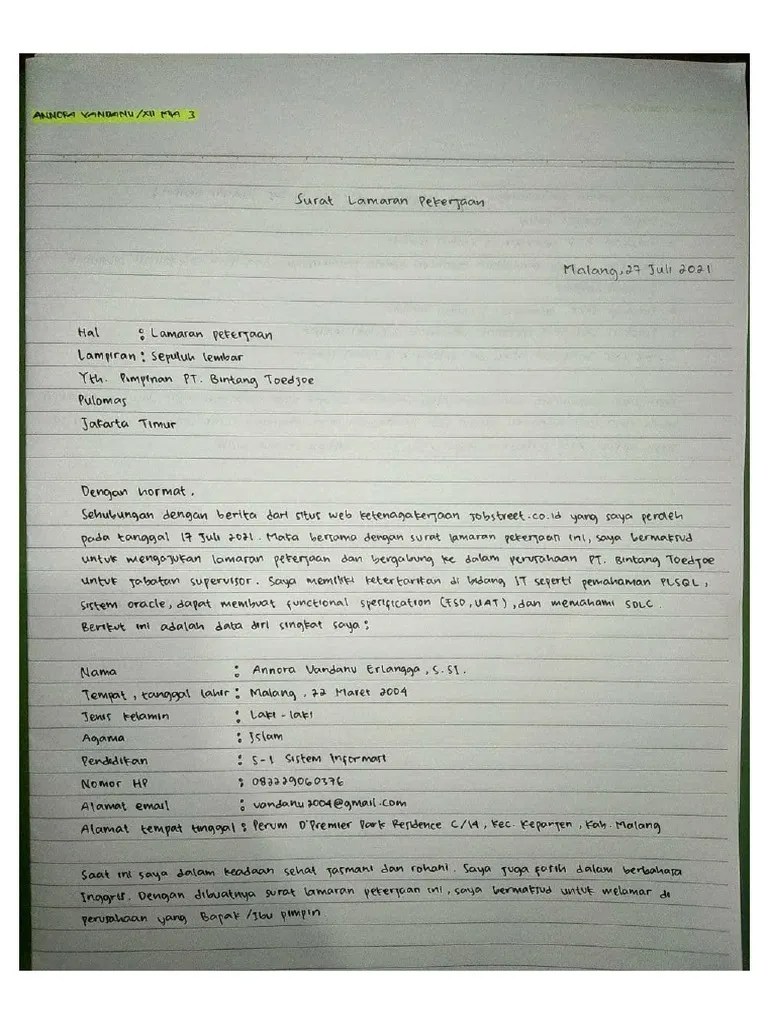 ANNORA VANDANU/XII MIA 3
Surat Lamaran Pekerjaan
Malang, 27 Juli 2021
Hal : Lamaran pekerjaan
Lampiran : Sepuluh lembar
Yth. Pimpinan PT. Bintang Toedjoe
Pulomas
Jakarta Timur
Dengan hormat.
Sehubungan dengan berita dari situs web ketenagakerjaan jobstreet.co.id yang saya peroleh
pada tanggal 17 Juli 2021. Maka bersama dengan surat lamaran pekerjaan ini, saya bermaksud
untuk mengajukan lamaran pekerjaan dan bergabung ke dalam perusahaan PT. Bintang Toedjoe
untuk jabatan supervisor. Saya memiliki ketertarikan di bidang IT seperti pemahaman PLSQL,
sistem oracle, dapat membuat functional specification (FSD, UAT), dan memahami SDLC.
Berikut ini adalah data diri singkat saya :
Nama : Annora Vandanu Erlangga, S.SI.
Tempat, tanggal lahir : Malang, 22 Maret 2004
Jenis kelamin : Laki-laki
Agama : Islam
Pendidikan : S-1 Sistem Informasi
Nomor HP : 082229060376
Alamat email : vandanu2004@gmail.com
Alamat tempat tinggal : Perum D'Premier Park Residence C/14, Kec. Kepanjen, Kab. Malang
Saat ini saya dalam keadaan sehat jasmani dan rohani. Saya juga fasih dalam berbahasa
Inggris. Dengan dibuatnya surat lamaran pekerjaan ini, saya bermaksud untuk melamar di
perusahaan yang Bapak/Ibu pimpin